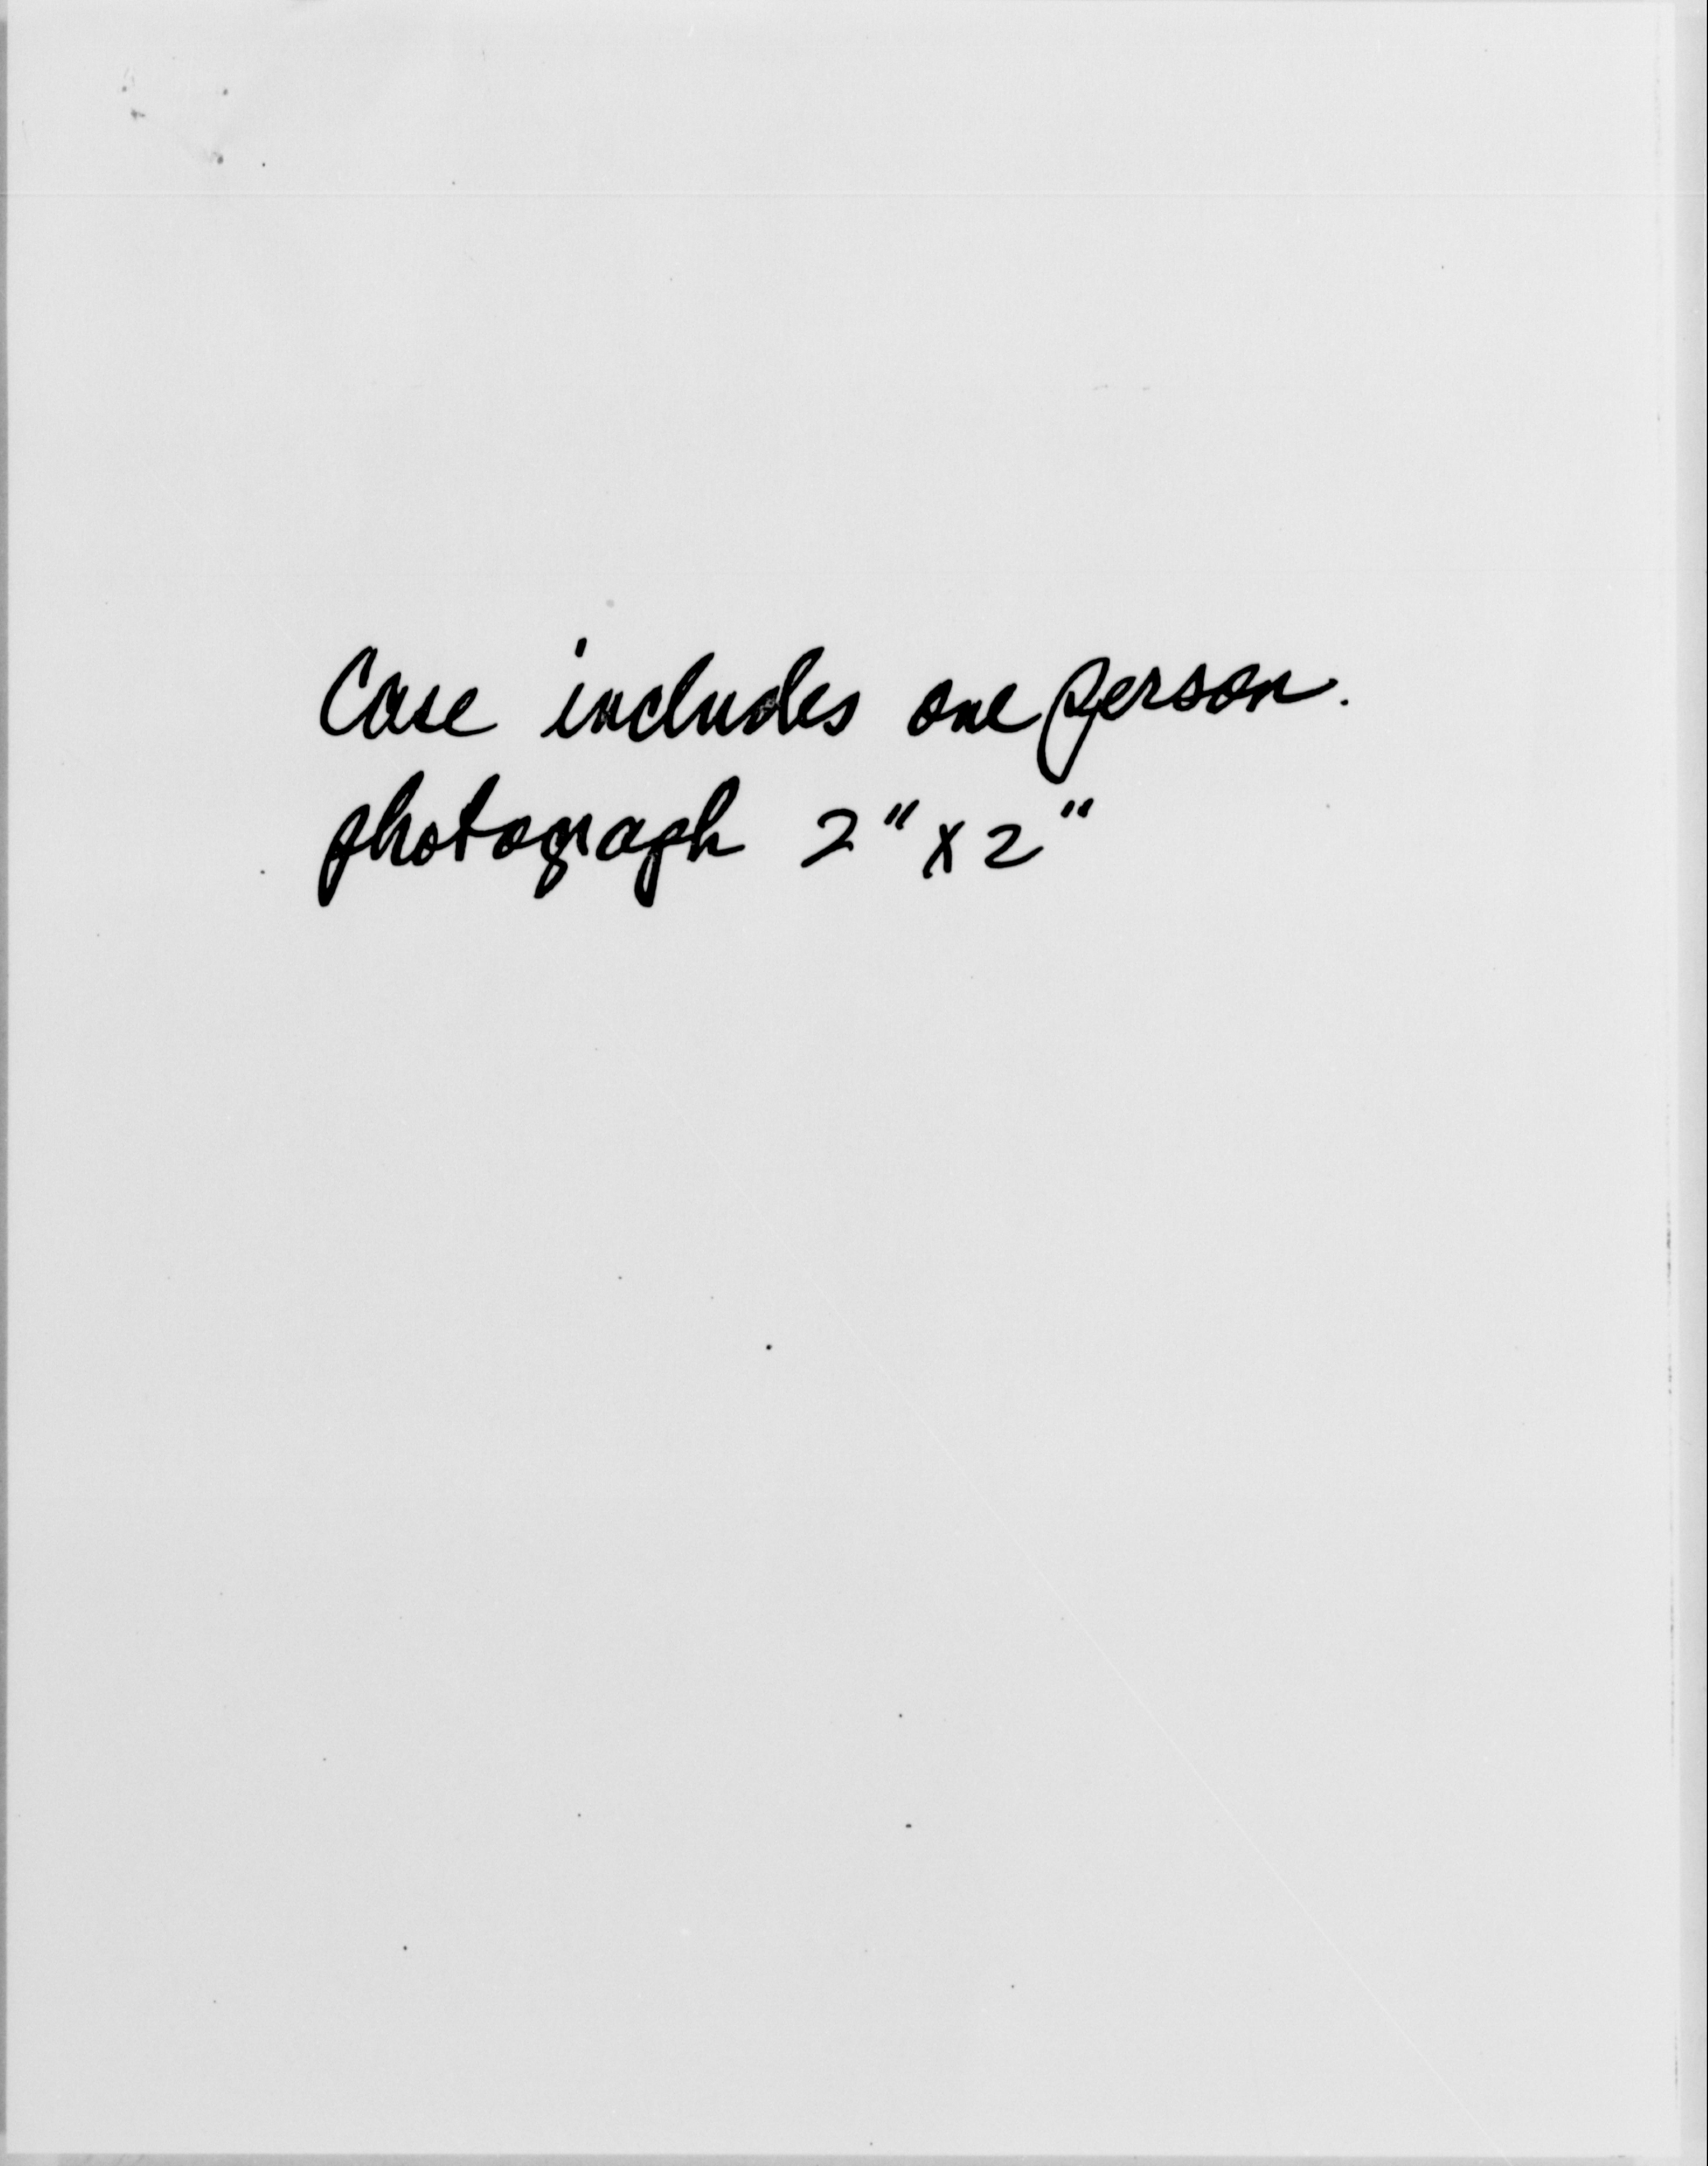 Case includes one person.
photograph 2" x 2"